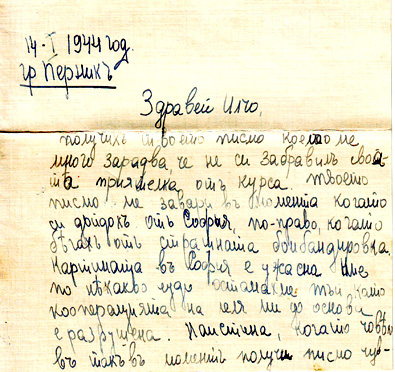 14-I 1944 год.
гр Перникъ
Здравей Илчо,
получихъ твоето писмо което ме
много зарадва, че не си забравилъ своя-
та приятелка отъ курса. Твоето
писмо ме завари въ момента когато
си дойдохъ отъ София, по-право, когато
бѣгахъ отъ страшната бомбандировка.
Картината въ София е ужасна. Ние
по нѣкакво чудо останахме тъй като
кооперацията на леля ми до основи
е разрушена. Наистина, когато човѣкъ
въ такъвъ моментъ получи писмо чув-